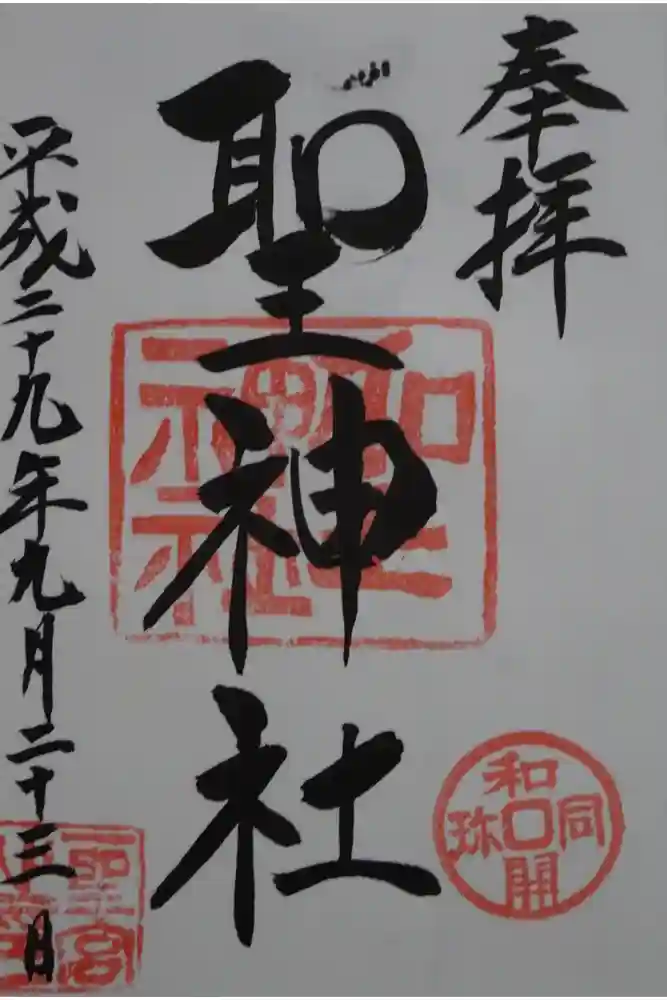 奉拝
聖神社
聖神社
和同開珎
平成二十九年九月二十三日